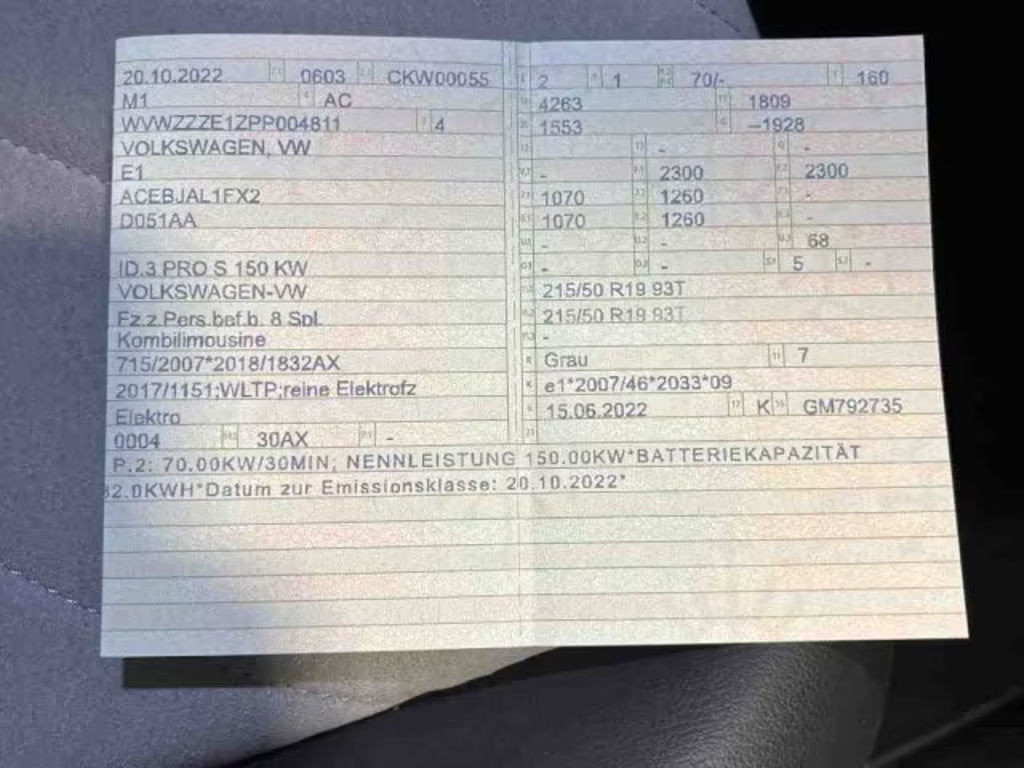 20.10.2022 0603 CKW00055
M1 AC
WVWZZZE1ZPP004811 4
VOLKSWAGEN, VW
E1
ACEBJAL1FX2
D051AA
ID.3 PRO S 150 KW
VOLKSWAGEN-VW
Fz.z.Pers.bef.b. 8 Spl.
Kombilimousine
715/2007*2018/1832AX
2017/1151;WLTP;reine Elektrofz
Elektro
0004 30AX -
2 1 70/- 160
4263 1809
1553 –1928
- -
- 2300 2300
1070 1260 -
1070 1260 -
- - 68
- - 5 -
215/50 R19 93T
215/50 R19 93T
-
Grau 7
e1*2007/46*2033*09
15.06.2022 K GM792735
P.2: 70.00KW/30MIN; NENNLEISTUNG 150.00KW*BATTERIEKAPAZITÄT
2.0KWH*Datum zur Emissionsklasse: 20.10.2022*